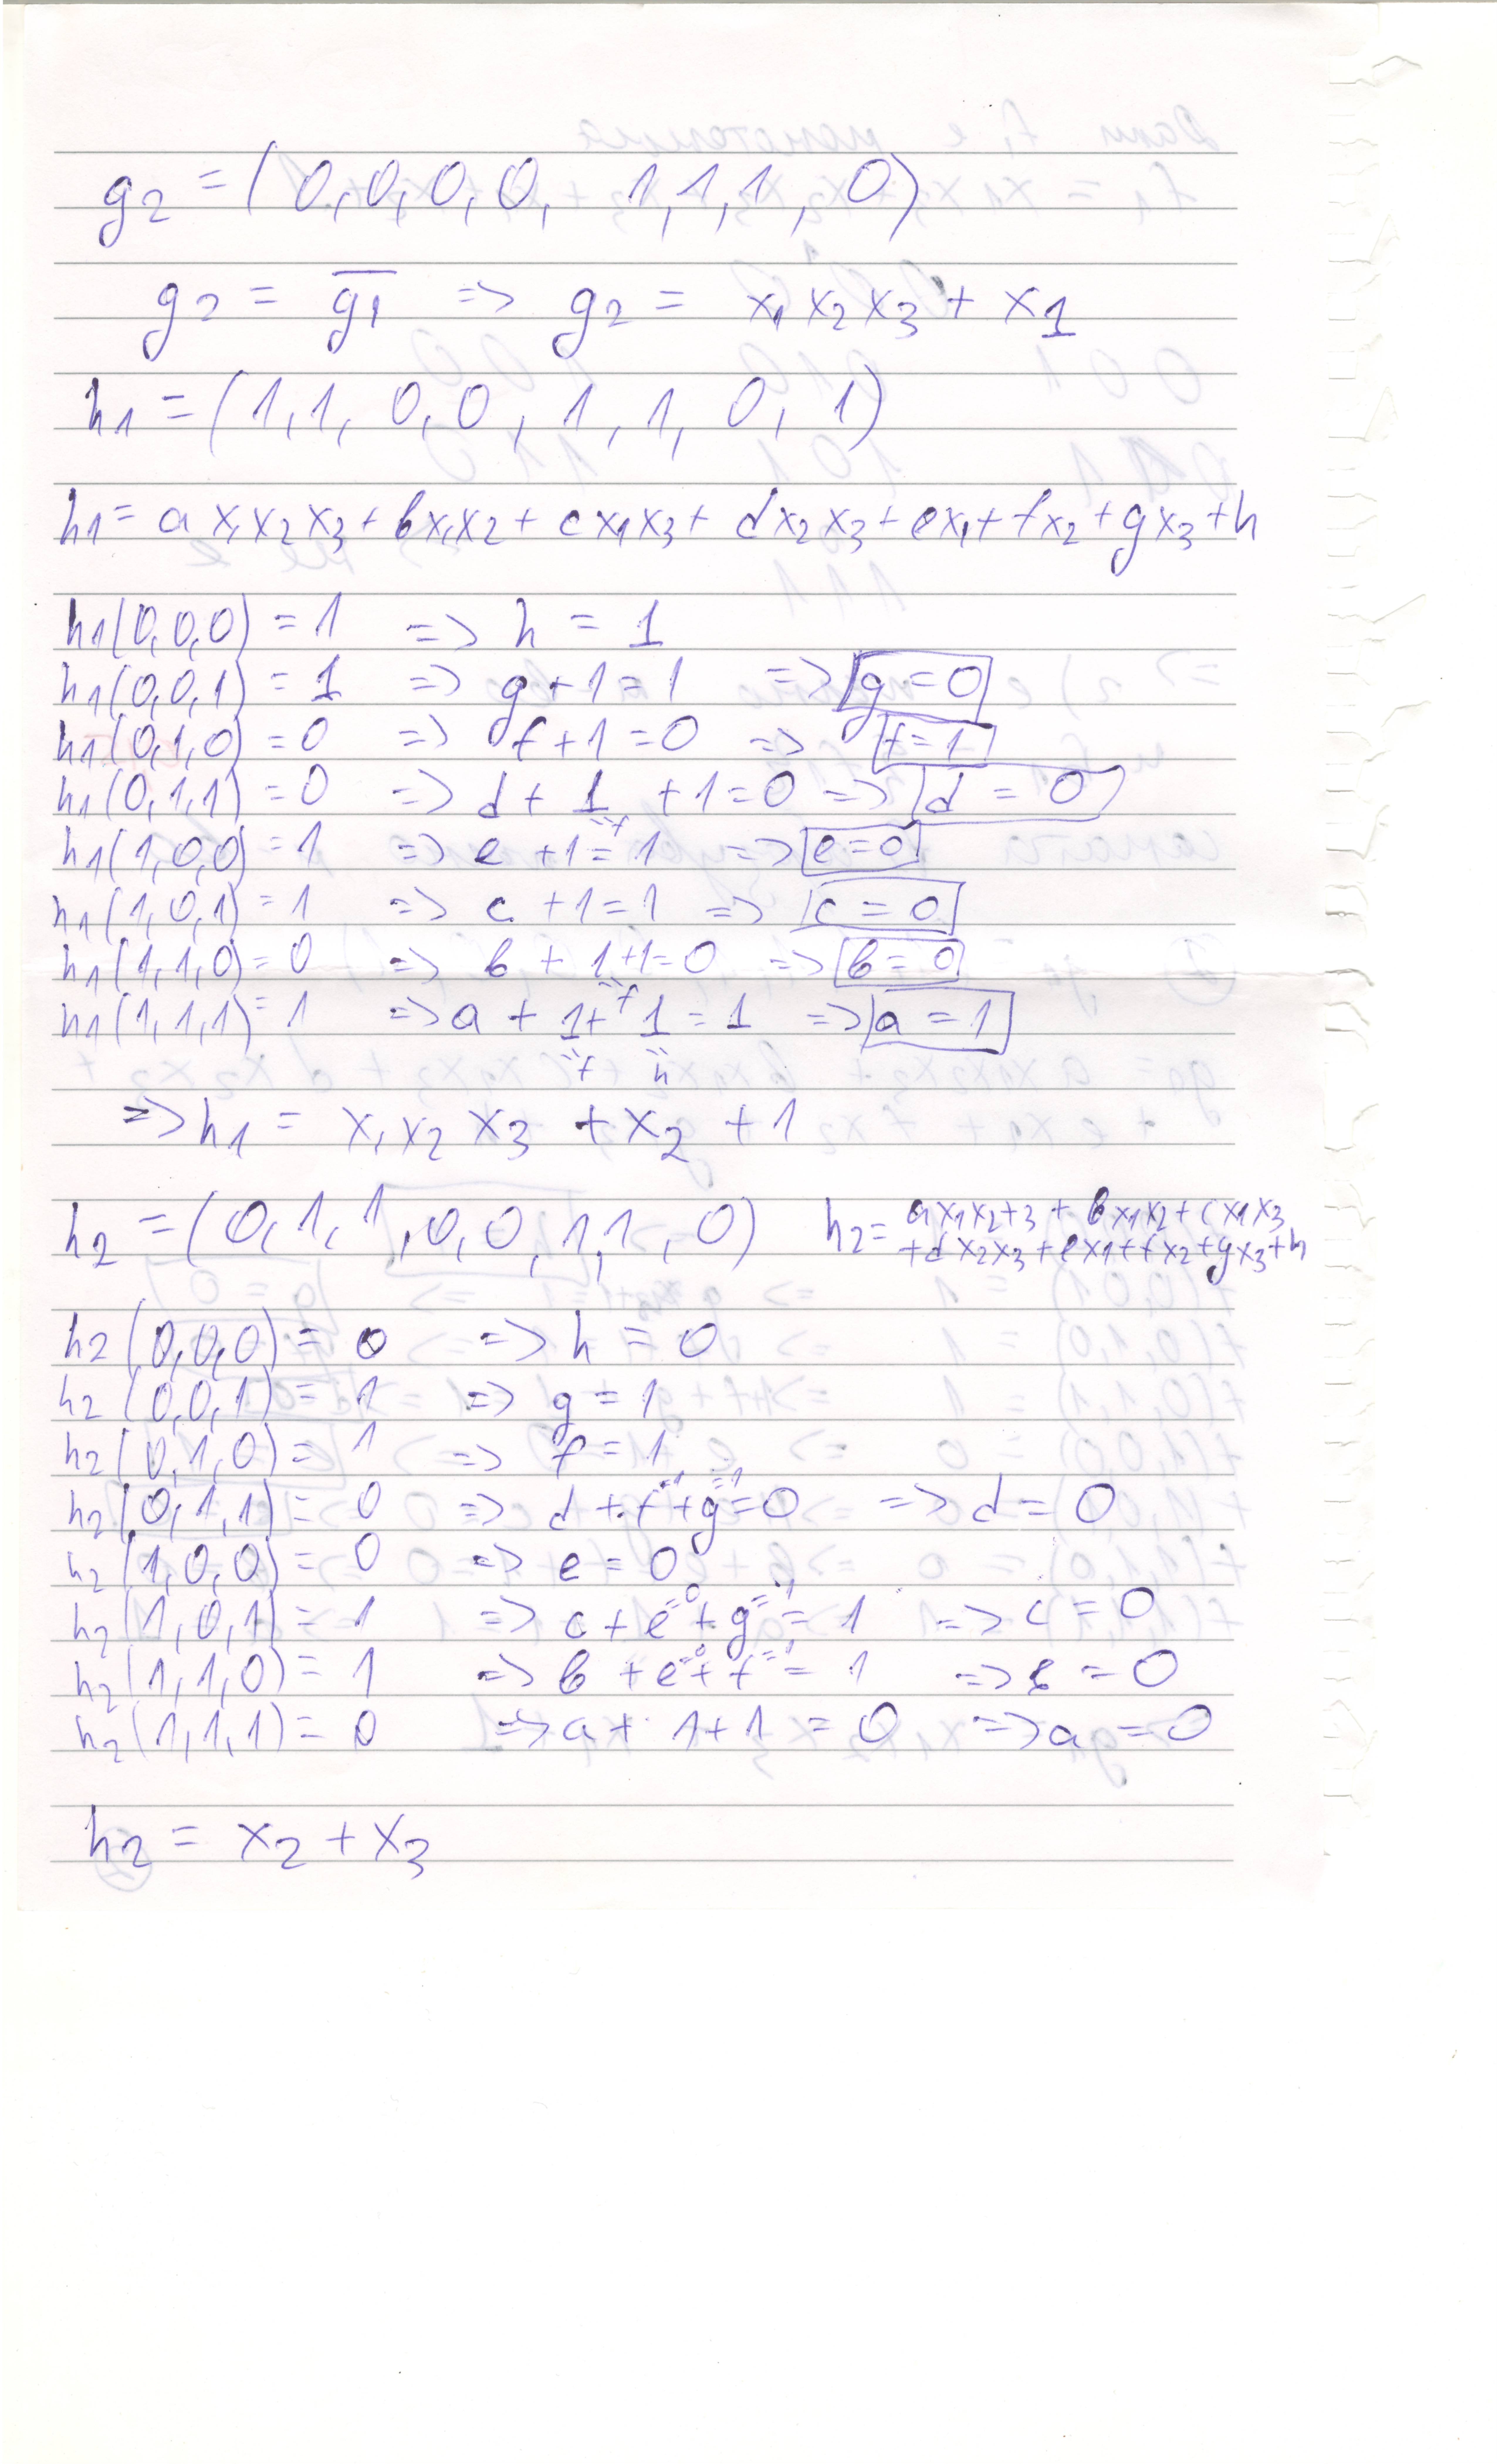 g2 = (0,0,0,0, 1,1,1, 0)
g2 = \overline{g1} => g2 = x1x2x3 + x1
h1 = (1,1, 0,0, 1,1, 0, 1)
h1 = ax1x2x3 + bx1x2 + cx1x3 + dx2x3 + ex1 + fx2 + gx3 + h
h1(0,0,0) = 1 => h = 1
h1(0,0,1) = 1 => g+1=1 => g=0
h1(0,1,0) = 0 => f+1=0 => f=1
h1(0,1,1) = 0 => d + 1 + 1=0 => d = 0
"f
h1(1,0,0) = 1 => e +1=1 => e=0
h1(1,0,1) = 1 => c +1=1 => c=0
h1(1,1,0) = 0 => b + 1+1=0 => b=0
"f
h1(1,1,1) = 1 => a + 1+1 = 1 => a=1
"f "h
=> h1 = x1x2x3 + x2 + 1
h2 = (0,1,1,0,0,1,1,0) h2= ax1x2+3 + bx1x2 + cx1x3
+dx2x3+ex1+fx2+gx3+h
h2(0,0,0) = 0 => h = 0
h2(0,0,1) = 1 => g = 1
h2(0,1,0) = 1 => f = 1
h2(0,1,1) = 0 => d + f^{=1} + g^{=1} = 0 => d = 0
h2(1,0,0) = 0 => e = 0
h2(1,0,1) = 1 => c + e^{=0} + g^{=1} = 1 => c = 0
h2(1,1,0) = 1 => b + e^{=0} + f^{=1} = 1 => b = 0
h2(1,1,1) = 0 => a + 1+1 = 0 => a = 0
h2 = x2 + x3